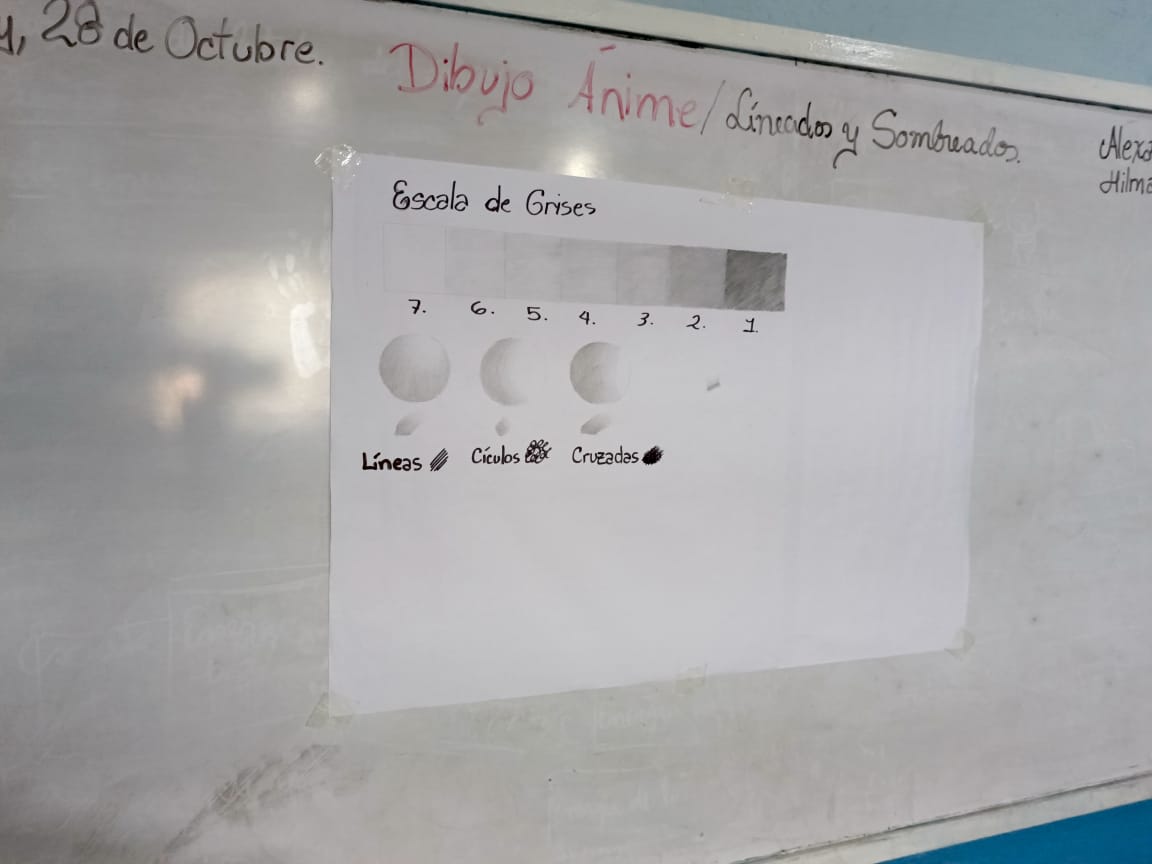 28 de Octubre.
Dibujo Ánime/Líneados y Sombreados.
Escala de Grises
7. 6. 5. 4. 3. 2. 1.
Líneas Cículos Cruzadas